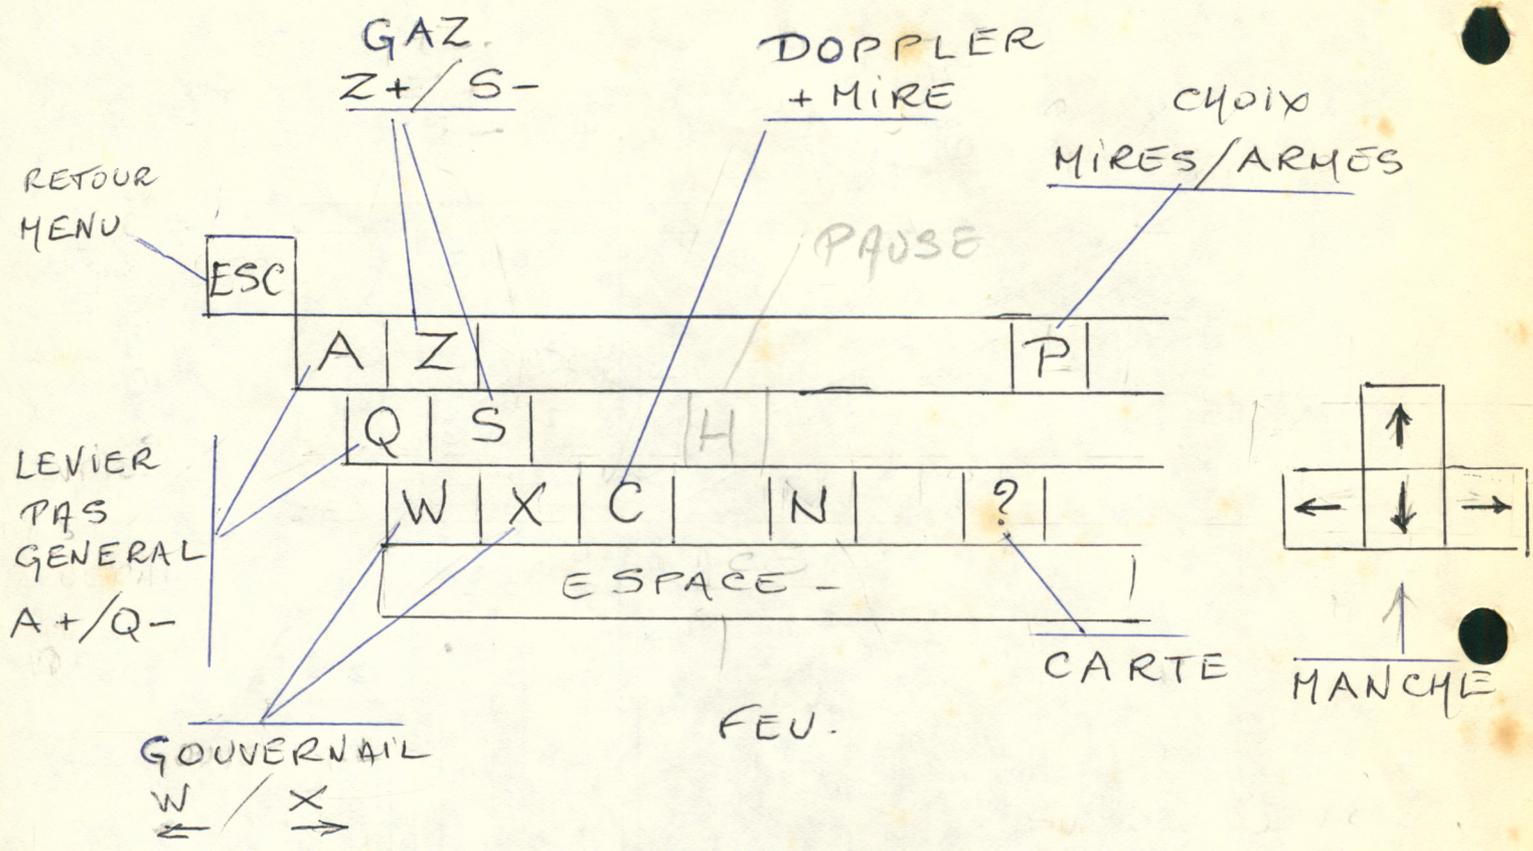 GAZ.
Z+/S-
DOPPLER
+ MIRE
CHOIX
MIRES/ARMES
RETOUR
MENU
PAUSE
ESC
A Z P
Q S H
W X C N ?
ESPACE -
LEVIER
PAS
GENERAL
A+/Q-
↑
← ↓ →
CARTE
MANCHE
FEU.
GOUVERNAIL
W / X
← →